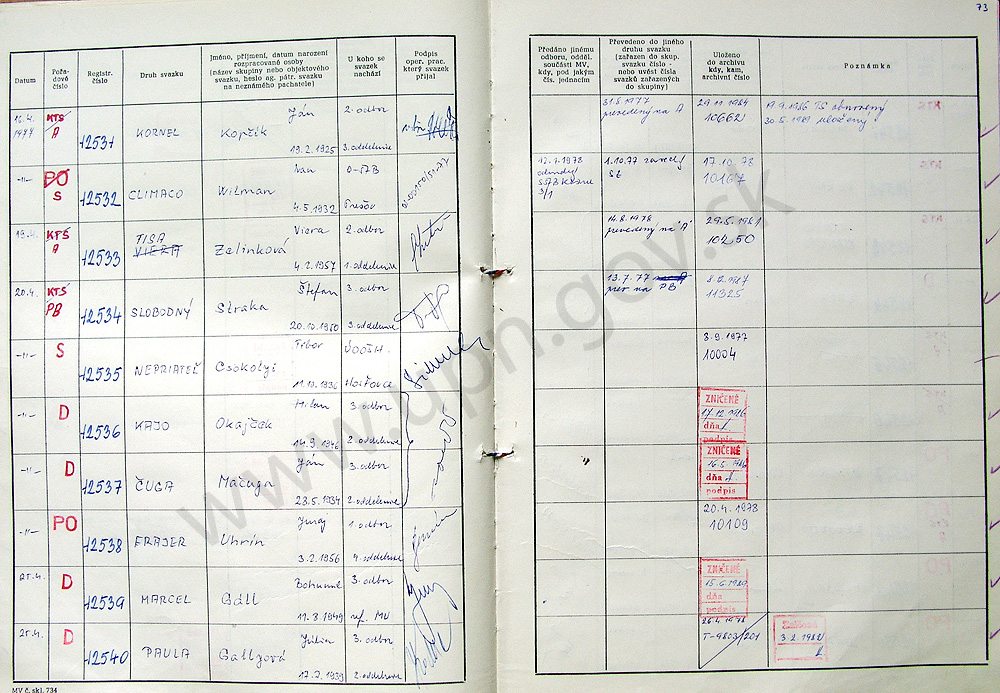 73
Datum
Pořadové číslo
Registr. číslo
Druh svazku
Jméno, příjmení, datum narození
rozpracované osoby
(název skupiny nebo objektového
svazku, heslo ag. pátr. svazku
na neznámého pachatele)
U koho se
svazek
nachází
Podpis
oper. prac.
který svazek
přijal
Předáno jinému
odboru, odděl.
součásti MV,
kdy, pod jakým
čís. jednacím
Převedeno do jiného
druhu svazku
(zařazen do skup.
svazku číslo -
nebo uvést čísla
svazků zařazených
do skupiny)
Uloženo
do archivu
kdy, kam,
archivní číslo
Poznámka
16.4.
1977
KTS
A
12531
KORNEL
Ján
Kopčík
19.2.1925
2. odbor
3. oddelenie
31.8.1977
prevedený na A
29.11.1984
10662
19.9.1986 TS obnovený
30.5.1989 uložený
-11-
PO
S
12532
CLIMACO
Ivan
Wilman
4.5.1932
O-ŠTB
Prešov
12.1.1978
1.10.77
17.10.78
10167
19.4.
KTS
A
12533
TISA
VIERA
Viera
Zelinková
4.2.1957
2. odbor
1. oddelenie
14.8.1978
prevedený na "A"
29.5.1981
10450
20.4.
KTS
PB
12534
SLOBODNÝ
Štefan
Straka
20.10.1950
3. odbor
3. oddelenie
13.7.77
prev na PB
8.12.1987
11325
-11-
S
12535
NEPRIATEĽ
Tibor
Csokolyi
11.10.1936
3.9.1977
10004
-11-
D
12536
KAJO
Milan
Okajček
14.9.1946
3. odbor
2. oddelenie
ZNIČENÉ
17.12.1986
dňa
podpis
-11-
D
12537
ČUGA
Ján
Mačuga
23.5.1934
3. odbor
2. oddelenie
ZNIČENÉ
16.5.1986
dňa
podpis
-11-
PO
12538
FRAJER
Juraj
Uhrín
3.2.1956
1. odbor
4. oddelenie
20.4.1978
10109
21.4.
D
12539
MARCEL
Bohumil
Gáll
11.3.1949
3. odbor
ref. MV
ZNIČENÉ
15.6.1989
dňa
podpis
25.4.
D
12540
PAULA
Júlia
Gallyová
17.2.1939
3. odbor
2. oddelenie
26.4.1978
T-9803/201
Zničené
3.2.1988
MV č. skl. 734
www.upn.gov.sk